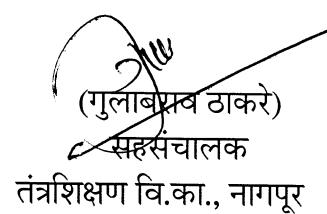 (गुलाबराव ठाकरे)
सहसंचालक
तंत्रशिक्षण वि.का., नागपूर